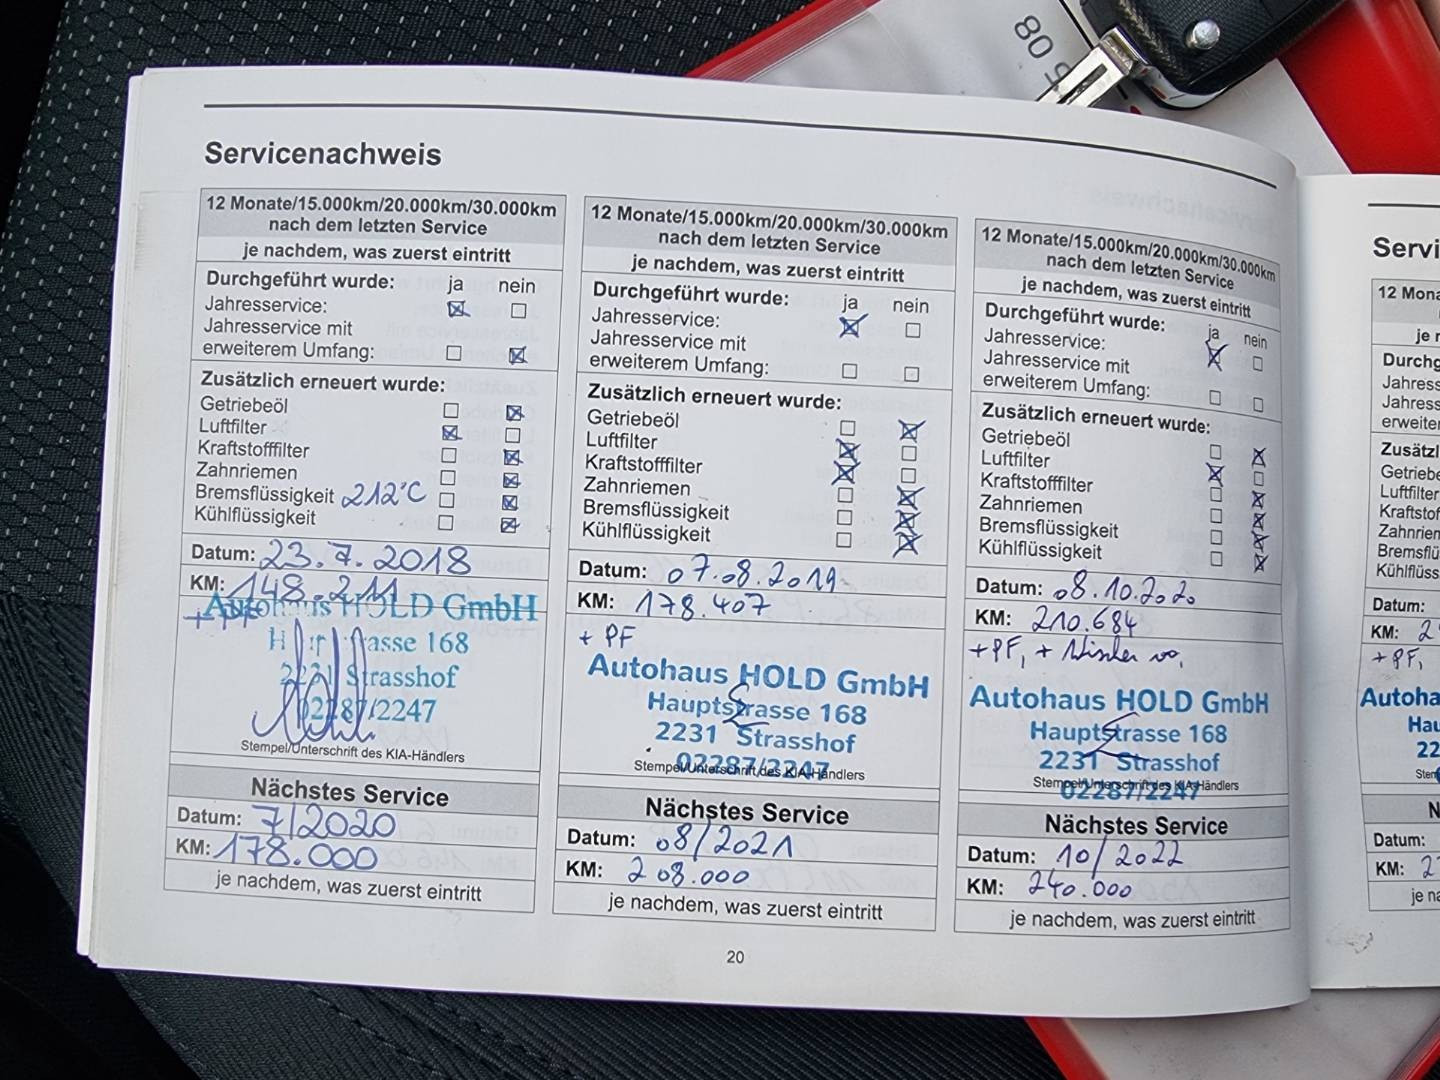 5 08
Servicenachweis
12 Monate/15.000km/20.000km/30.000km
nach dem letzten Service
je nachdem, was zuerst eintritt
Durchgeführt wurde: ja nein
Jahresservice:
Jahresservice mit
erweiterem Umfang:
Zusätzlich erneuert wurde:
Getriebeöl
Luftfilter
Kraftstofffilter
Zahnriemen
Bremsflüssigkeit 212°C
Kühlflüssigkeit
Datum: 23.7.2018
KM: 148.211
+ PF
Autohaus HOLD GmbH
Hauptstrasse 168
2231 Strasshof
02287/2247
Stempel/Unterschrift des KIA-Händlers
Nächstes Service
Datum: 7/2020
KM: 178.000
je nachdem, was zuerst eintritt
12 Monate/15.000km/20.000km/30.000km
nach dem letzten Service
je nachdem, was zuerst eintritt
Durchgeführt wurde: ja nein
Jahresservice:
Jahresservice mit
erweiterem Umfang:
Zusätzlich erneuert wurde:
Getriebeöl
Luftfilter
Kraftstofffilter
Zahnriemen
Bremsflüssigkeit
Kühlflüssigkeit
Datum: 07.08.2019
KM: 178.407
+ PF
Autohaus HOLD GmbH
Hauptstrasse 168
2231 Strasshof
02287/2247
Stempel/Unterschrift des KIA-Händlers
Nächstes Service
Datum: 08/2021
KM: 208.000
je nachdem, was zuerst eintritt
12 Monate/15.000km/20.000km/30.000km
nach dem letzten Service
je nachdem, was zuerst eintritt
Durchgeführt wurde: ja nein
Jahresservice:
Jahresservice mit
erweiterem Umfang:
Zusätzlich erneuert wurde:
Getriebeöl
Luftfilter
Kraftstofffilter
Zahnriemen
Bremsflüssigkeit
Kühlflüssigkeit
Datum: 08.10.2020
KM: 210.684
+PF, + Wischer vo,
Autohaus HOLD GmbH
Hauptstrasse 168
2231 Strasshof
02287/2247
Stempel/Unterschrift des KIA-Händlers
Nächstes Service
Datum: 10/2022
KM: 240.000
je nachdem, was zuerst eintritt
20
Servi
12 Mona
je n
Durchg
Jahress
Jahress
erweiter
Zusätzl
Getriebe
Luftfilter
Kraftstof
Zahnrien
Bremsflü
Kühlflüss
Datum:
KM: 2
+ PF,
Autoha
Hau
22
Stem
N
Datum:
KM: 2
je na